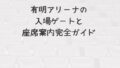 有明アリーナの
入場ゲートと
座席案内完全ガイド